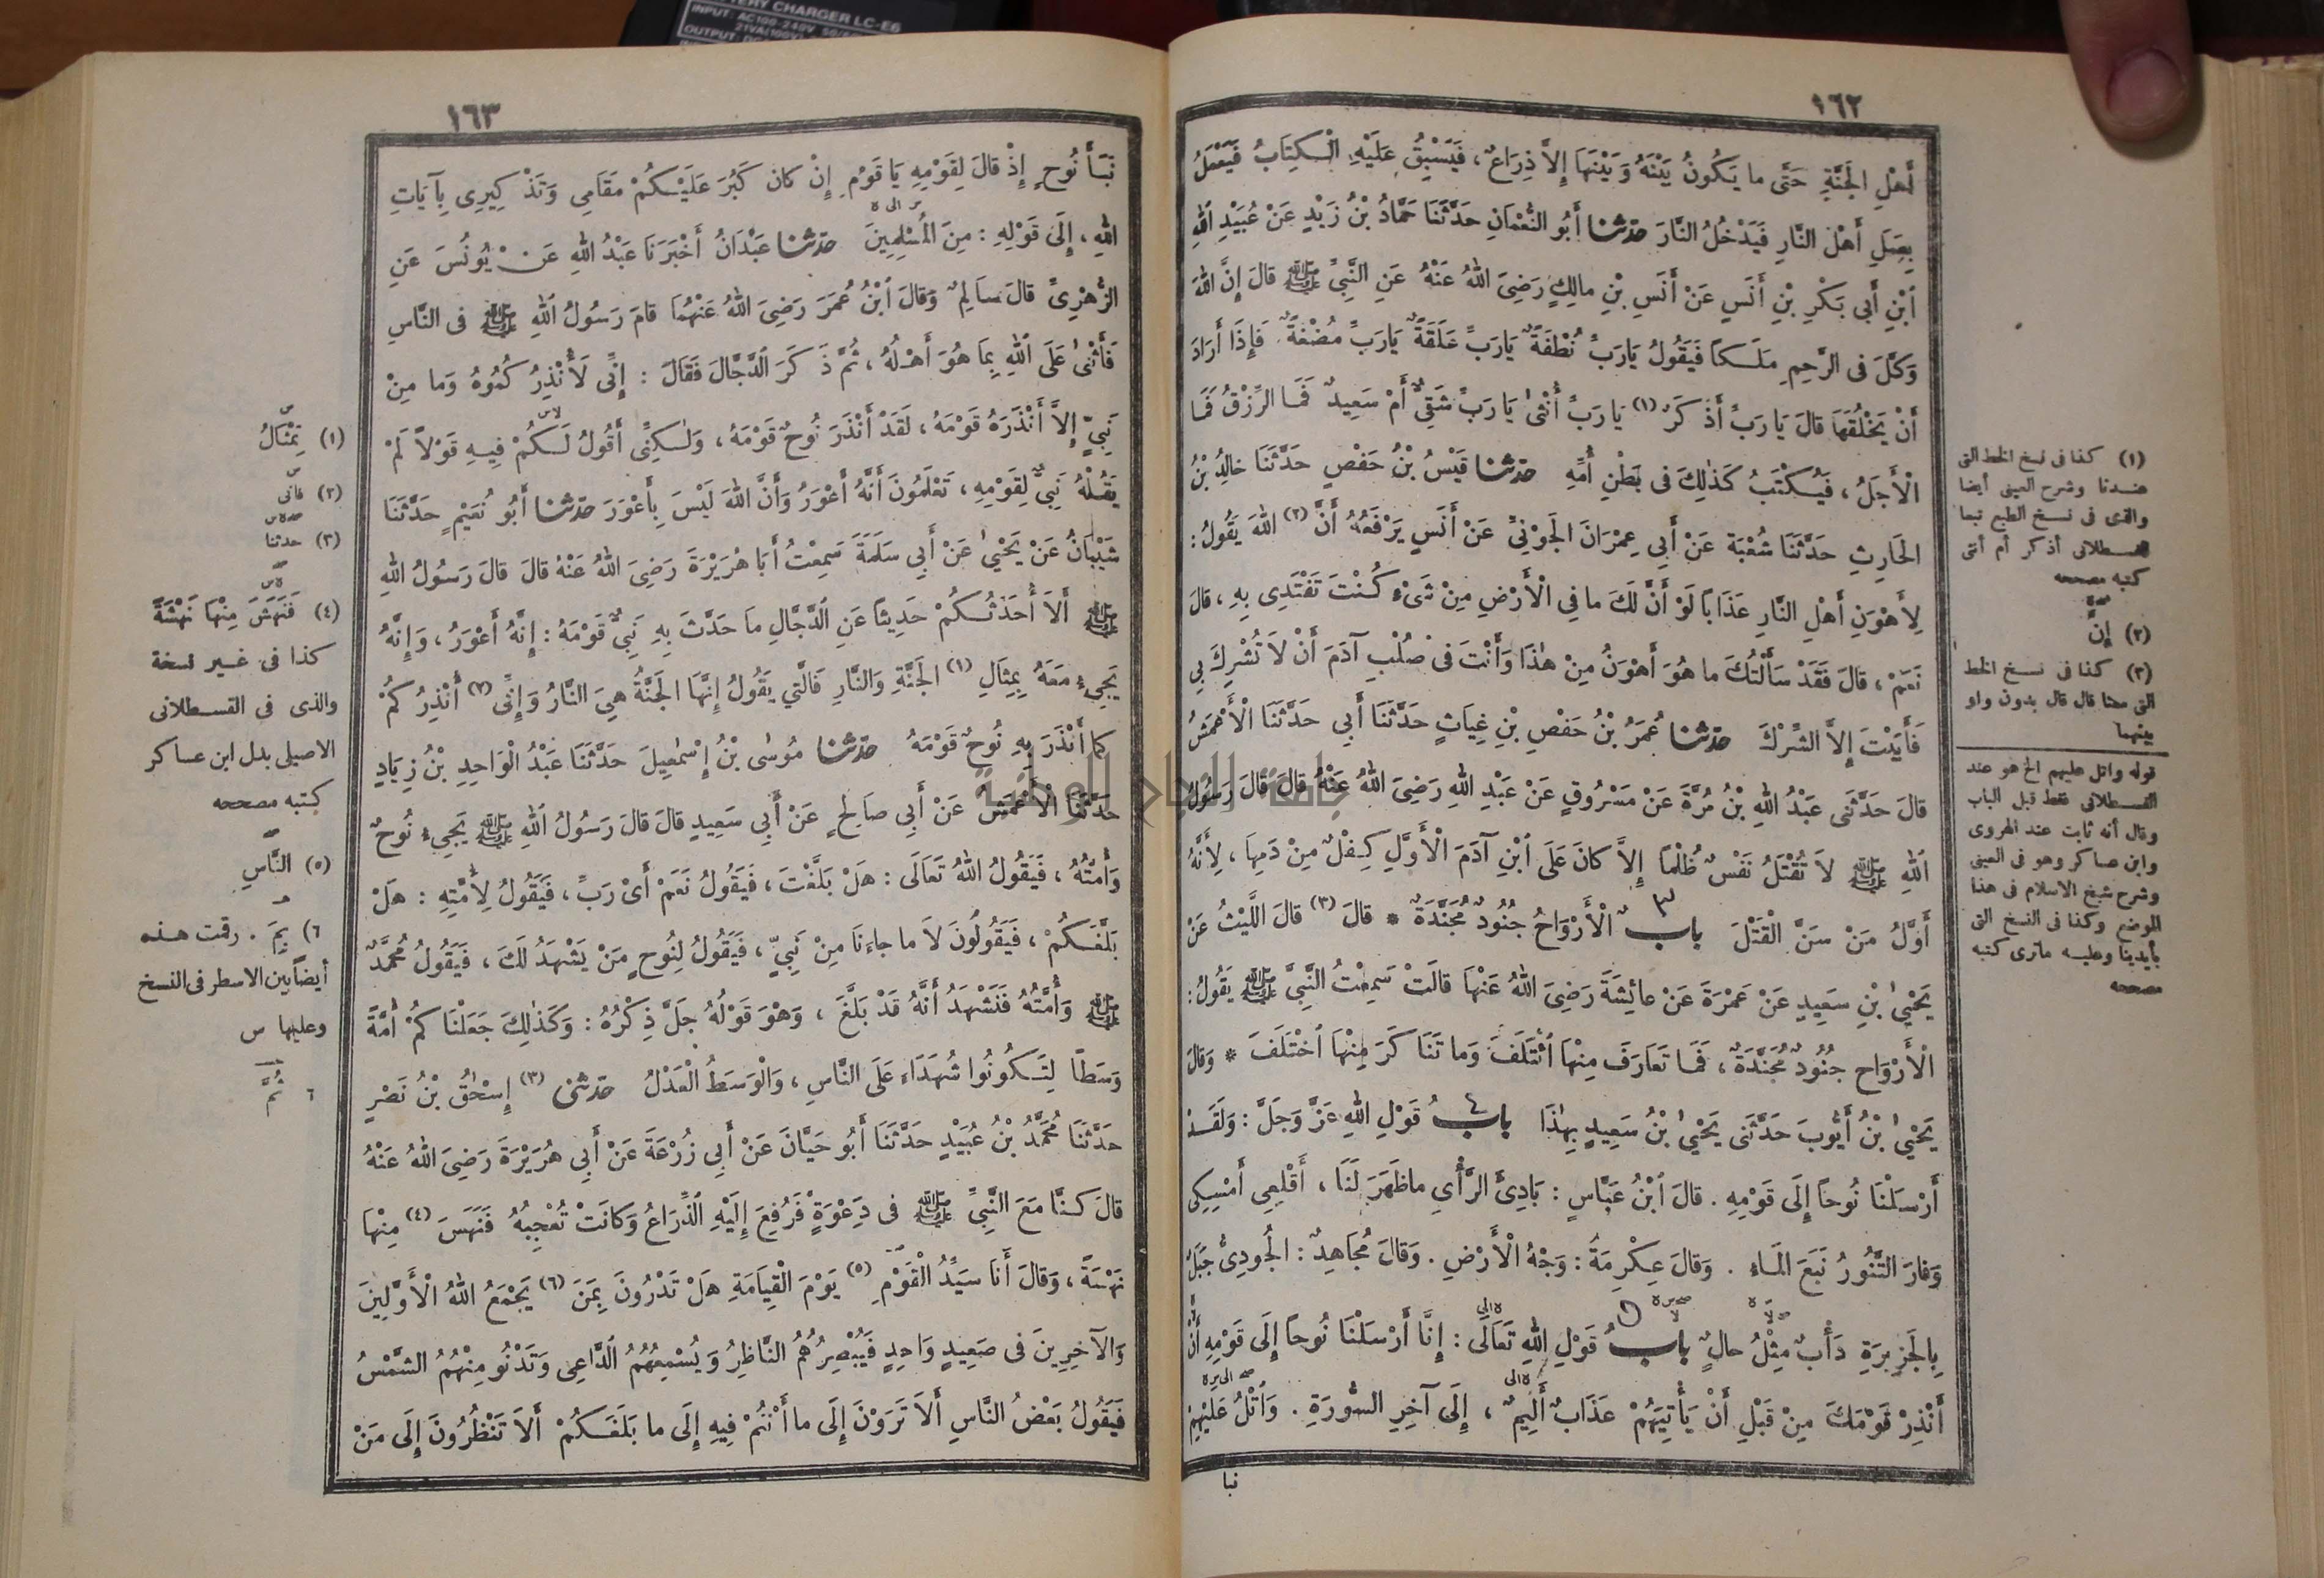 ١٦٢
أَهْلِ الْجَنَّةِ حَتَّى ما يَكُونُ بَيْنَهُ وَبَيْنَهَا إِلاَّ ذِرَاعٌ ، فَيَسْبِقُ عَلَيْهِ الْكِتَابُ فَيَعْمَلُ
بِعَمَلِ أَهْلِ النَّارِ فَيَدْخُلُ النَّارَ حدّثنا أَبُو النُّعْمَانِ حَدَّثَنَا حَمَّادُ بْنُ زَيْدٍ عَنْ عُبَيْدِ اللهِ
ٱبْنِ أَبِي بَكْرِ بْنِ أَنَسٍ عَنْ أَنَسِ بْنِ مالِكٍ رَضِيَ اللهُ عَنْهُ عَنِ النَّبِيِّ ﷺ قالَ إِنَّ اللهَ
وَكَّلَ فى الرَّحِمِ مَلَكاً فَيَقُولُ يَارَبِّ نُطْفَةٌ يَارَبِّ عَلَقَةٌ يَارَبِّ مُضْغَةٌ ، فَإِذَا أَرَادَ
أَنْ يَخْلُقَهَا قالَ يَا رَبِّ أَذَكَرٌ (١) يَا رَبِّ أُنْثَى يَا رَبِّ شَقِيٌّ أَمْ سَعِيدٌ فَمَا الرِّزْقُ فَمَا
الْأَجَلُ ، فَيُكْتَبُ كَذٰلِكَ فى بَطْنِ أُمِّهِ حدّثنا قَيْسُ بْنُ حَفْصٍ حَدَّثَنَا خالِدُ بْنُ
الْحَارِثِ حَدَّثَنَا شُعْبَةُ عَنْ أَبِي عِمْرَانَ الْجَوْنِيِّ عَنْ أَنَسٍ يَرْفَعُهُ أَنَّ (٢) اللهَ يَقُولُ :
لِأَهْوَنِ أَهْلِ النَّارِ عَذَاباً لَوْ أَنَّ لَكَ ما فِي الْأَرْضِ مِنْ شَىْءٍ كُنْتَ تَفْتَدِى بِهِ ، قالَ
نَعَمْ ، قالَ فَقَدْ سَأَلْتُكَ ما هُوَ أَهْوَنُ مِنْ هٰذَا وَأَنْتَ فى صُلْبِ آدَمَ أَنْ لاَ تُشْرِكَ بِي
فَأَبَيْتَ إِلاَّ الشِّرْكَ حدّثنا عُمَرُ بْنُ حَفْصِ بْنِ غِيَاثٍ حَدَّثَنَا أَبِي حَدَّثَنَا الْأَعْمَشُ
قالَ حَدَّثَنى عَبْدُ اللهِ بْنُ مُرَّةَ عَنْ مَسْرُوقٍ عَنْ عَبْدِ اللهِ رَضِيَ اللهُ عَنْهُ قالَ قالَ رَسُولُ
اللهِ ﷺ لاَ تُقْتَلُ نَفْسٌ ظُلْماً إِلاَّ كانَ عَلَى ٱبْنِ آدَمَ الْأَوَّلِ كِفْلٌ مِنْ دَمِهَا ، لِأَنَّهُ
أَوَّلُ مَنْ سَنَّ الْقَتْلَ باب ٣ الْأَرْوَاحُ جُنُودٌ مُجَنَّدَةٌ * قالَ (٣) قالَ اللَّيْثُ عَنْ
يَحْيٰى بْنِ سَعِيدٍ عَنْ عَمْرَةَ عَنْ عائِشَةَ رَضِيَ اللهُ عَنْهَا قالَتْ سَمِعْتُ النَّبِيَّ ﷺ يَقُولُ :
الْأَرْوَاح جُنُودٌ مُجَنَّدَةٌ ، فَمَا تَعَارَفَ مِنْهَا ٱئْتَلَفَ وَما تَنَاكَرَ مِنْهَا ٱخْتَلَفَ * وَقالَ
يَحْيٰى بْنُ أَيُّوبَ حَدَّثَنى يَحْيٰى بْنُ سَعِيدٍ بِهٰذَا باب ٤ قَوْلِ اللهِ عَزَّ وَجَلَّ : وَلَقَدْ
أَرْسَلْنَا نُوحاً إِلَى قَوْمِهِ . قالَ ٱبْنُ عَبَّاسٍ : بَادِئَ الرَّأْيِ ماظَهَرَ لَنَا ، أَقْلِعِي أَمْسِكِى
وَفارَ التَّنُّورُ نَبَعَ الْمَاءُ . وَقالَ عِكْرِمَةُ : وَجْهُ الْأَرْضِ . وَقالَ مُجَاهِدٌ : الْجُودِيُّ جَبَلٌ
بِالْجَزِيرَةِ دَأْبٌ مِثْلُ حالٍ باب ٥ قَوْلِ اللهِ تَعَالَى : إِنَّا أَرْسَلْنَا نُوحاً إِلَى قَوْمِهِ أَنْ
أَنْذِرْ قَوْمَكَ مِنْ قَبْلِ أَنْ يَأْتِيَهُمْ عَذَابٌ أَلِيمٌ ، إِلَى آخِرِ السُّورَةِ . وَٱتْلُ عَلَيْهِمْ
نبأ
(١) كذا فى نسخ الخط التى
عندنا وشرح العينى أيضا
والذى فى نسخ الطبع تبعا
للقسطلانى أذكر أم أنثى
كتبه مصححه
(٢) إِنَّ
(٣) كذا فى نسخ الخط
التى معنا قال قال بدون واو
بينهما
قوله واتل عليهم الخ هو عند
القسطلانى فقط قبل الباب
وقال أنه ثابت عند الهروى
وابن عساكر وهو فى العينى
وشرح شيخ الاسلام فى هذا
الموضع وكذا فى النسخ التى
بأيدينا وعليه ماترى كتبه
مصححه
١٦٣
نَبَأَ نُوحٍ إِذْ قالَ لِقَوْمِهِ يَا قَوْمِ إِنْ كانَ كَبُرَ عَلَيْكُمْ مَقَامِى وَتَذْكِيرِى بِآيَاتِ
اللهِ ، إِلَى قَوْلِهِ : مِنَ الْمُسْلِمِينَ حدّثنا عَبْدَانُ أَخْبَرَنَا عَبْدُ اللهِ عَنْ يُونُسَ عَنِ
الزُّهْرِىِّ قالَ سالِمٌ وَقالَ ٱبْنُ عُمَرَ رَضِيَ اللهُ عَنْهُمَا قامَ رَسُولُ اللهِ ﷺ فى النَّاسِ
فَأَثْنٰى عَلَى اللهِ بِمَا هُوَ أَهْلُهُ ، ثُمَّ ذَكَرَ الدَّجَّالَ فَقَالَ : إِنِّى لَأُنْذِرُكُمُوهُ وَما مِنْ
نَبِيٍّ إِلاَّ أَنْذَرَهُ قَوْمَهُ ، لَقَدْ أَنْذَرَ نُوحٌ قَوْمَهُ ، وَلٰكِنِّى أَقُولُ لَكُمْ فِيهِ قَوْلاً لَمْ
يَقُلْهُ نَبِيٌّ لِقَوْمِهِ ، تَعْلَمُونَ أَنَّهُ أَعْوَرُ وَأَنَّ اللهَ لَيْسَ بِأَعْوَرَ حدّثنا أَبُو نُعَيْمٍ حَدَّثَنَا
شَيْبَانُ عَنْ يَحْيٰى عَنْ أَبِي سَلَمَةَ سَمِعْتُ أَبَا هُرَيْرَةَ رَضِيَ اللهُ عَنْهُ قالَ قالَ رَسُولُ اللهِ
ﷺ أَلاَ أُحَدِّثُكُمْ حَدِيثاً عَنِ الدَّجَّالِ ما حَدَّثَ بِهِ نَبِيٌّ قَوْمَهُ : إِنَّهُ أَعْوَرُ ، وَإِنَّهُ
يَجِيءُ مَعَهُ بِمِثَالِ (١) الْجَنَّةِ وَالنَّارِ فَالَّتِي يَقُولُ إِنَّهَا الْجَنَّةُ هِيَ النَّارُ وَإِنِّى (٢) أُنْذِرُكُمْ
كما أَنْذَرَ بِهِ نُوحٌ قَوْمَهُ حدّثنا مُوسٰى بْنُ إِسْمٰعِيلَ حَدَّثَنَا عَبْدُ الْوَاحِدِ بْنُ زِيَادٍ
حَدَّثَنَا الْأَعْمَشُ عَنْ أَبِي صَالِحٍ عَنْ أَبِي سَعِيدٍ قالَ قالَ رَسُولُ اللهِ ﷺ يَجِيءُ نُوحٌ
وَأُمَّتُهُ ، فَيَقُولُ اللهُ تَعَالَى : هَلْ بَلَّغْتَ ، فَيَقُولُ نَعَمْ أَىْ رَبِّ ، فَيَقُولُ لِأُمَّتِهِ : هَلْ
بَلَّغَكُمْ ، فَيَقُولُونَ لاَ ما جاءَنَا مِنْ نَبِيٍّ ، فَيَقُولُ لِنُوحٍ مَنْ يَشْهَدُ لَكَ ، فَيَقُولُ مُحَمَّدٌ
ﷺ وَأُمَّتُهُ فَنَشْهَدُ أَنَّهُ قَدْ بَلَّغَ ، وَهْوَ قَوْلُهُ جَلَّ ذِكْرُهُ : وَكَذٰلِكَ جَعَلْنَاكُمْ أُمَّةً
وَسَطاً لِتَكُونُوا شُهَدَاءَ عَلَى النَّاسِ ، وَالْوَسَطُ الْعَدْلُ حدّثنى (٣) إِسْحٰقُ بْنُ نَصْرٍ
حَدَّثَنَا مُحَمَّدُ بْنُ عُبَيْدٍ حَدَّثَنَا أَبُو حَيَّانَ عَنْ أَبِي زُرْعَةَ عَنْ أَبِي هُرَيْرَةَ رَضِيَ اللهُ عَنْهُ
قالَ كُنَّا مَعَ النَّبِيِّ ﷺ فى دَعْوَةٍ فَرُفِعَ إِلَيْهِ الذِّرَاعُ وَكانَتْ تُعْجِبُهُ فَنَهَسَ (٤) مِنْهَا
نَهْسَةً ، وَقالَ أَنَا سَيِّدُ الْقَوْمِ (٥) يَوْمَ الْقِيَامَةِ هَلْ تَدْرُونَ بِمَنْ (٦) يَجْمَعُ اللهُ الْأَوَّلِينَ
وَالآخِرِينَ فى صَعِيدٍ وَاحِدٍ فَيُبْصِرُهُمُ النَّاظِرُ وَيُسْمِعُهُمُ الدَّاعِى وَتَدْنُو مِنْهُمُ الشَّمْسُ
فَيَقُولُ بَعْضُ النَّاسِ أَلاَ تَرَوْنَ إِلَى ما أَنْتُمْ فِيهِ إِلَى ما بَلَغَكُمْ أَلاَ تَنْظُرُونَ إِلَى مَنْ
(١) تِمْثَالُ
(٢) فانى
(٣) حدثنا
(٤) فَنَهَشَ مِنْهَا نَهْشَةً
كذا فى غير نسخة
والذى فى القسطلانى
الاصيلى بدل ابن عساكر
كتبه مصححه
(٥) النَّاسِ
٦) بِمَ . رقمت هذه
أيضاً بين الاسطر فى النسخ
وعليها س
٦ ثُمَّ
BATTERY CHARGER LC-E6
INPUT: AC100-240V 50/60
جامعة النجاح الوطنية